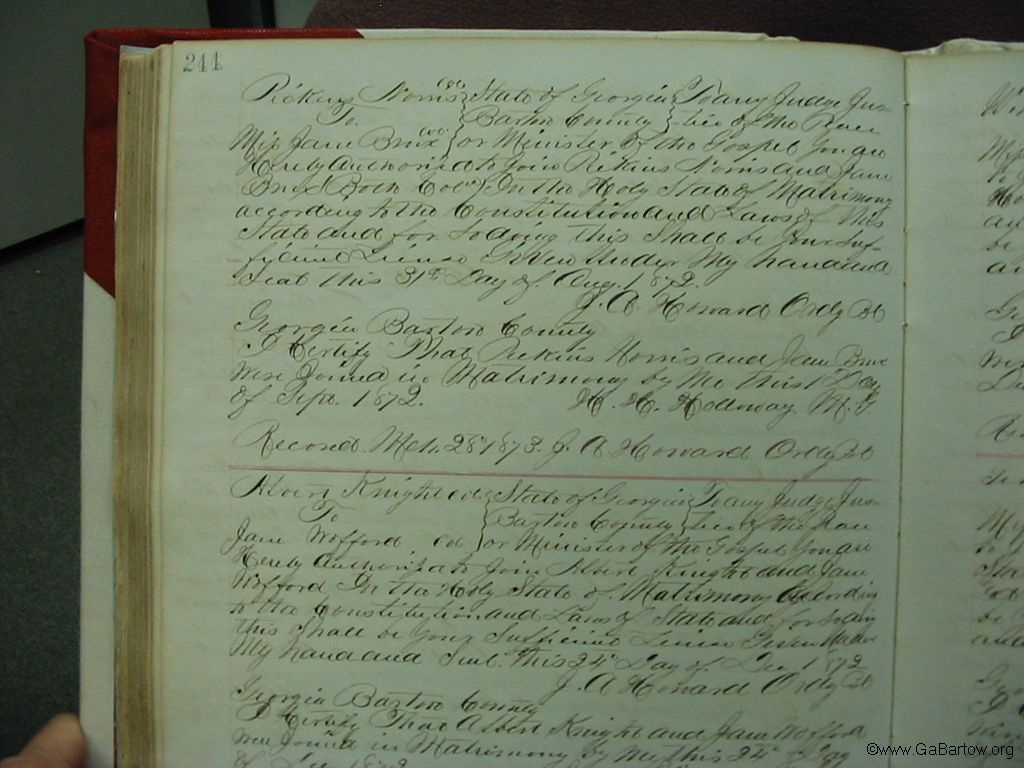 244
Pickens Norris col } State of Georgia } To any Judge Jus-
To { Bartow County } tice of the Peace
Miss Jane Brux col } or Minister of the Gospel you are
Hereby Authorized to join Pickins Norris and Jane
Brux (Both Cold) In the Holy State of Matrimony
according to the Constitution and Laws of this
State and for so doing this Shall be your suf-
ficient License Given Under My hand and
Seal this 31st Day of Aug. 1872.
J. A. Howard Ordy BC
Georgia Bartow County
I Certify That Pickins Norris and Jane Brux
Were Joined in Matrimony by Me this 1 Day
of Sept. 1872. H. H. Holloway M. G
Record Mch. 28th 1873. J. A Howard Ordy BC
Albert Knight col { State of Georgia } To any Judge Jus-
To { Bartow County } tice of the Peace
Jane Wofford col } or Minister of the Gospel you are
Hereby Authorized to Join Albert Knight and Jane
Wofford In the Holy State of Matrimony According
to the Constitution and Laws of State and for so doing
this Shall be your Sufficient License Given Under
My hand and Seal. This 24th Day of Dec 1872
J. A Howard Ordy BC
Georgia Bartow County
I Certify That Albert Knight and Jane Wofford
were Joined in Matrimony by Me this 24th Day
of 1872
©www.GaBartow.org